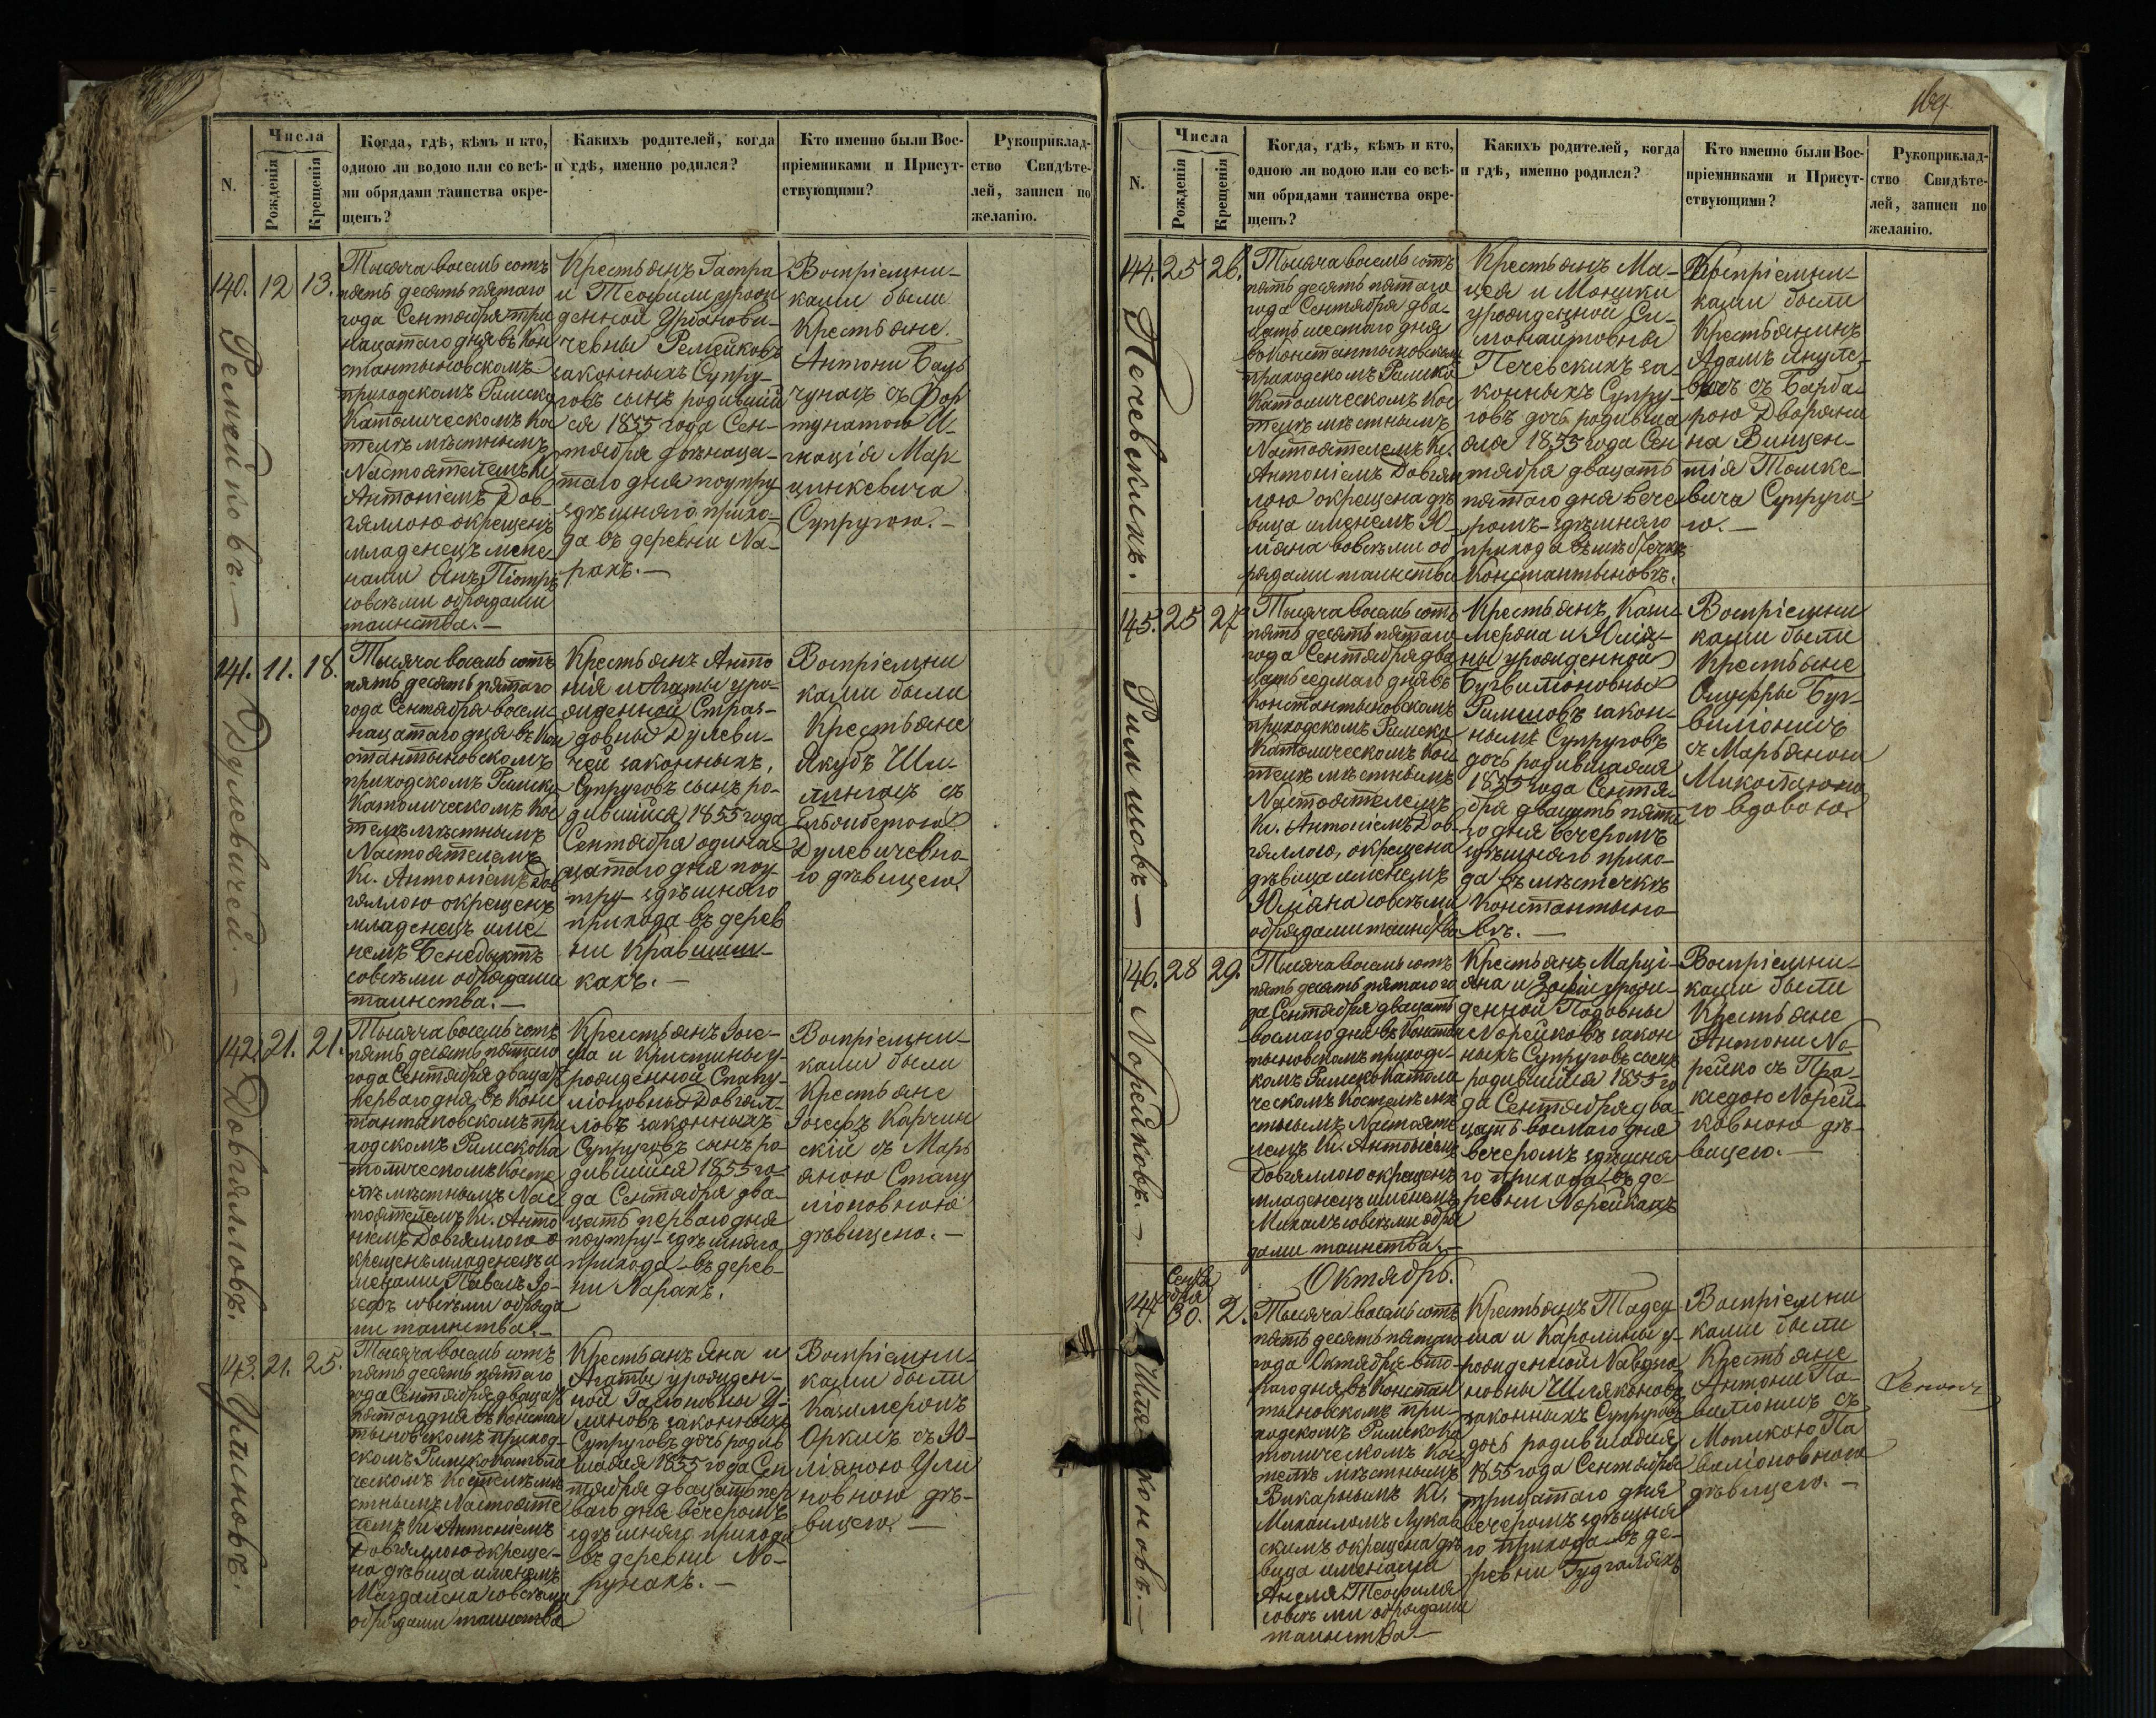 N.
Числа
Рожденія
Крещенія
Когда, гдѣ, кѣмъ и кто,
одною ли водою или со всѣ-
ми обрядами таинства окре-
щенъ?
Какихъ родителей, когда
и гдѣ, именно родился?
Кто именно были Вос-
пріемниками и Присут-
ствующими?
Рукоприклад-
ство Свидѣте-
лей, записи по
желанію.
140. 12 13.
Ремейковъ. —
Тысяча восемь сотъ
пять десять пятаго
года Сентября три
нацатаго дня въ Кон
стантыновскомъ
приходскомъ Римско
Католическомъ Ко
стелѣ мѣстнымъ
Настоятелемъ К.
Антоніемъ Дов-
гялою окрещенъ
младенецъ имe-
нами Янъ, Піотръ
совсѣми обрядами
таинства. —
Крестьянъ Гаспра
и Теофили урож
денной Урбанови-
чевны Ремейковъ
законныхъ Супру-
говъ сынъ родивший
ся 1855 года Сен-
тября двѣнаца-
таго дня поутру
здѣшняго прихо-
да въ деревни На-
рахъ. —
Воспріемни-
ками были
Крестьяне
Антони Бась
чунасъ съ Фор
тунатою И-
гнація Мар
цинкевича
Супругою. —
141. 11. 18.
Дулевичей. —
Тысяча восемь сотъ
пять десять пятаго
года Сентября восем
нацатаго дня въ Кон
стантыновскомъ
приходскомъ Римско
Католическомъ Кос
телѣ мѣстнымъ
Настоятелемъ
К. Антоніемъ Дов
гялою окрещенъ
младенецъ име-
немъ Бенедыктъ
совсѣми обрядами
таинства. —
Крестьянъ Анто
нія и Агаты уро-
жденной Страз-
довны Дулеви-
чей законныхъ
Супруговъ сынъ ро-
дившійся 1855 года
Сентября одинна
цатаго дня поу-
тру здѣшняго
прихода въ дерев
ни Кравшиш-
кахъ. —
Воспріемни
ками были
Крестьяне
Якубъ Ши-
лингасъ съ
Ельжбетою
Дулевичевно-
ю дѣвицею.
142. 21. 21.
Довгялловъ.
Тысяча восемь сотъ
пять десять пятаго
года Сентября двацать
перваго дня въ Конс
тантыновскомъ при
ходскомъ Римско Ка
толическомъ Косте
лѣ мѣстнымъ Нас
тоятелемъ К. Анто
ніемъ Довгялою о
крещенъ младенецъ и
менами Павелъ Іо-
зефъ совсѣми обряда
ми таинства. —
Крестьянъ Іозе-
фа и Кристины у-
рожденной Стапу-
ліоновны Довгял-
ловъ законныхъ
Супруговъ сынъ ро-
дившійся 1855 го
да Сентября два-
цать перваго дня
поутру здѣшняго
прихода въ дерев-
ни Нарахъ.
Воспріемни-
ками были
Крестьяне
Іозефъ Карчин
скій съ Марь
яною Стапу
ліоновною
дѣвицею. —
143. 21. 25.
Улиновъ.
Тысяча восемь сотъ
пять десять пятаго
года Сентября двацать
пятаго дня въ Констан
тыновскомъ приход-
скомъ Римско Католи
ческомъ Костелѣ мѣ
стнымъ Настояте
лемъ К. Антоніемъ
Довгялою окреще-
на дѣвица именемъ
Магдалена совсѣми
обрядами таинства
Крестьянъ Яна и
Агаты урожден-
ной Гаспоновны У-
линовъ законныхъ
Супруговъ дочь родив
шаяся 1855 года Сен
тября двацать пер
ваго дня вечеромъ
здѣшняго прихода
въ деревни Но-
рунахъ. —
Воспріемни-
ками были
Казимеронъ
Оркисъ съ Ю-
ліяною Ули
новною дѣ-
вицею. —
164
N.
Числа
Рожденія
Крещенія
Когда, гдѣ, кѣмъ и кто,
одною ли водою или со всѣ-
ми обрядами таинства окре-
щенъ?
Какихъ родителей, когда
и гдѣ, именно родился?
Кто именно были Вос-
пріемниками и Присут-
ствующими?
Рукоприклад-
ство Свидѣте-
лей, записи по
желанію.
144. 25 26.
Печевскихъ.
Тысяча восемь сотъ
пять десять пятаго
года Сентября два-
цать шестаго дня
во Константыновскомъ
приходскомъ Римско
Католическомъ Кос
телѣ мѣстнымъ
Настоятелемъ К.
Антоніемъ Довгял
лою окрещена дѣ
вица именемъ Ю-
ліяна совсѣми об
рядами таинства
Крестьянъ Ма-
цея и Моники
урожденной Си-
монайтовны
Печевскихъ за-
конныхъ Супру-
говъ дочь родивша
яся 1855 года Сен
тября двацать
пятаго дня вече
ромъ здѣшняго
прихода въ мѣстечкѣ
Константыновѣ.
Воспріемни-
ками были
Крестьянинъ
Адамъ Януле-
вичъ съ Барба-
рою Дворяни
на Винцен-
тія Томке-
вича Супруго-
ю. —
145. 25 27.
Римшовъ —
Тысяча восемь сотъ
пять десять пятаго
года Сентября два
цать седмаго дня въ
Константыновскомъ
приходскомъ Римско
Католическомъ Кос
телѣ мѣстнымъ
Настоятелемъ
К. Антоніемъ Дов-
гяллою, окрещена
дѣвица именемъ
Юліяна совсѣми
обрядами таинства
Крестьянъ Кази-
мерона и Юлія-
ны урожденной
Бутвиліоновны
Римшовъ закон-
ныхъ Супруговъ
дочь родившаяся
1855 года Сентя-
бря двацать пята
го дня вечеромъ
здѣшняго прихо-
да въ мѣстечкѣ
Константыно-
вѣ. —
Воспріемни
ками были
Крестьяне
Онуфры Бут-
виліонисъ
съ Марьяною
Миколаюно
ю вдовою.
146. 28 29.
Норейковъ. —
Тысяча восемь сотъ
пять десять пятаго го
да Сентября двацать
восмаго дня въ Констан
тыновскомъ приходс-
комъ Римско Католи
ческомъ Костелѣ мѣ
стнымъ Настояте
лемъ К. Антоніемъ
Довгяллою окрещенъ
младенецъ именемъ
Михалъ совсѣми обря
дами таинства. —
Крестьянъ Марці-
яна и Зофіи урож-
денной Подовны
Норейковъ закон
ныхъ Супруговъ сынъ
родившійся 1855 го
да Сентября два-
цать восмаго дня
вечеромъ здѣшня
го прихода въ де-
ревни Норейкахъ
Воспріемни-
ками были
Крестьяне
Антони Но-
рейко съ Пра-
кседою Норей-
ковною дѣ-
вицею. —
Октябрь.
147. Сентября 30. 2.
Шляконовъ. —
Тысяча восемь сотъ
пять десять пятаго
года Октября вто-
раго дня въ Констан
тыновскомъ при-
ходскомъ Римско Ка
толическомъ Кос
телѣ мѣстнымъ
Викарнымъ К.
Михаиломъ Лукав
скимъ окрещена дѣ
вица именами
Анеля, Теофиля
совсѣми обрядами
таинства —
Крестьянъ Тадеу
ша и Каролины у-
рожденной Навдзю-
новны Шляконовъ
законныхъ Супруговъ
дочь родившаяся
1855 года Сентября
тридцатаго дня
вечеромъ здѣшня
го прихода въ де-
ревни Гудгаляхъ
Воспріемни
ками были
Крестьяне
Антони Па-
виліонисъ съ
Моникою Па
виліоновною
дѣвицею. —